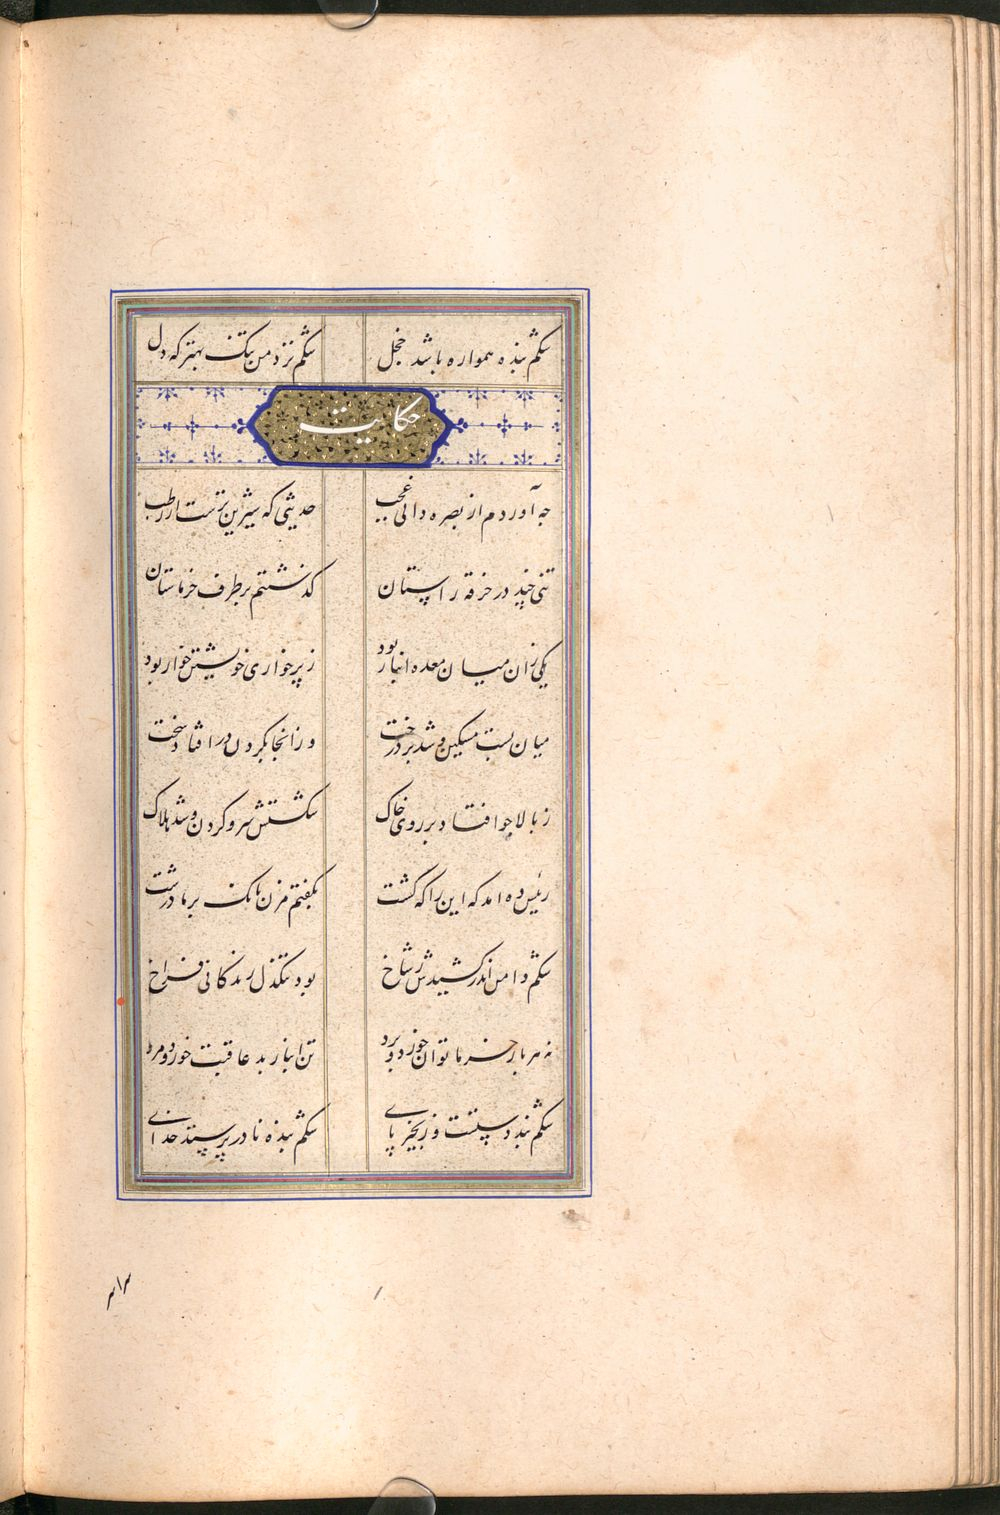 شکم بنده همواره باشد خجل شکم نزد من تنگ بهتر که دل
حکایت
چه آوردم از بصره دانی عجب حدیثی که شیرین ترست از رطب
تنی چند در خرقه راستان گذشتیم بر طرف خرماستان
یکی زان میان معده انبار بود ز پر خواری خویشتن خوار بود
میان بست مسکین و شد بر درخت وز انجا بگردن در افتاد سخت
ز بالا چو افتاد بر روی خاک شکستش سر و گردن و شد هلاک
رئیس ده امد که این را که کشت بگفتم مزن بانک بر ما درشت
شکم دامن اندر کشیدش ز شاخ بود تنکدل زندکانی فراخ
نه هر بار خرما توان خورد و برد تن انبار بد عاقبت خورد و مرد
شکم بند دستست و زنجیر پای شکم بنده نادر پرستد خدای
۳۱۳